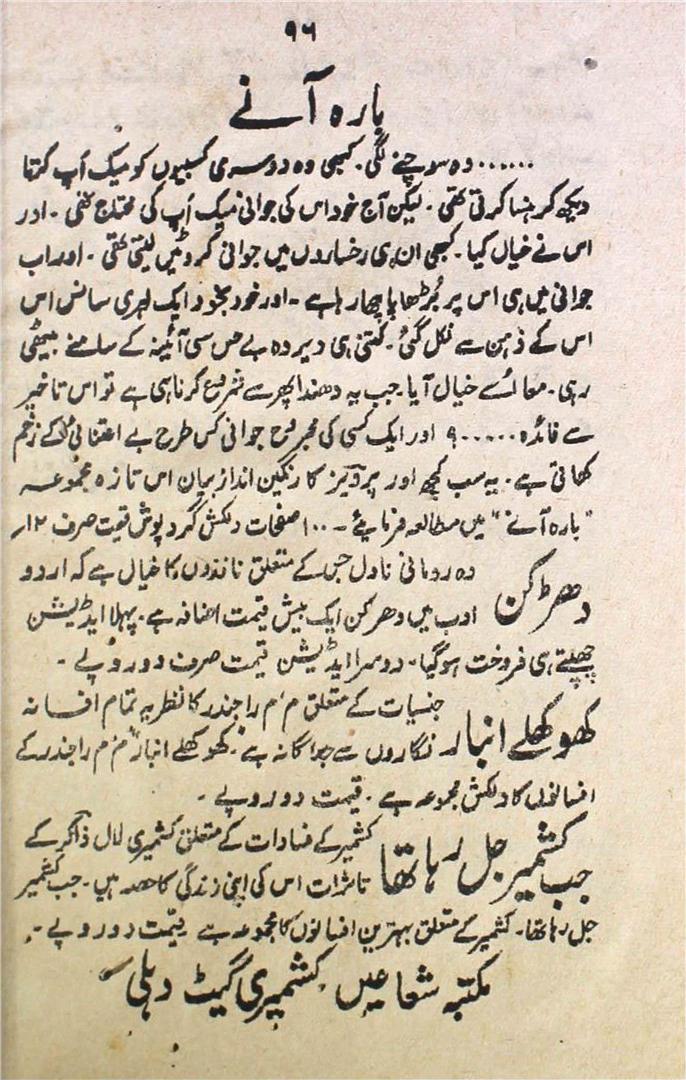 ۹۶
بارہ آنے
...... وہ سوچنے لگی۔ کبھی وہ دوسری کسبیوں کو میک اَپ کرتا
دیکھ کر ہنسا کرتی تھی۔ لیکن آج خود اس کی جوانی میک اَپ کی محتاج تھی۔ اور
اس نے خیال کیا۔ کبھی ان ہی رخساروں میں جوانی کروٹیں لیتی تھی۔ اور اب
جوانی میں ہی اس پر بُڑھاپا چھا رہا ہے۔ اور خود بخود ایک لہری سانس اس
اس کے ذہن سے نکل گئی۔ کتنی ہی دیر وہ بے حس سی آئینہ کے سامنے بیٹھی
رہی۔ معاً اُسے خیال آیا۔ جب یہ دھندا پھر سے شروع کرنا ہی ہے تو اس تاخیر
سے فائدہ ...... ۹ اور ایک کسبی کی مجروح جوانی کس طرح بے اعتنائی کے زخم
کھاتی ہے۔ یہ سب کچھ اور پرویز کا رنگین انداز بیان اس تازہ مجموعہ
"بارہ آنے" میں مطالعہ فرمایئے۔ ۱۰۰ صفحات دلکش گرد پوش قیمت صرف ۱۲؍
دھڑکن وہ رومانی ناول جس کے متعلق ناقدوں کا خیال ہے کہ اردو
ادب میں دھڑکن ایک بیش قیمت اضافہ ہے۔ پہلا ایڈیشن
چھپتے ہی فروخت ہوگیا۔ دوسرا ایڈیشن قیمت صرف دو روپے۔
کھوکھلے انبار جنسیات کے متعلق م۔م راجندر کا نظریہ تمام افسانہ
نگاروں سے جداگانہ ہے۔ کھوکھلے انبار م۔م راجندر کے
افسانوں کا دلکش مجموعہ ہے۔ قیمت دو روپے۔
جب کشمیر جل رہا تھا کشمیر کے فسادات کے متعلق کشمیری لال ذاکر کے
تاثرات اس کی اپنی زندگی کا حصہ ہیں۔ جب کشمیر
جل رہا تھا۔ کشمیر کے متعلق بہترین افسانوں کا مجموعہ ہے قیمت دو روپے۔
مکتبہ شعاعیں کشمیری گیٹ دہلی